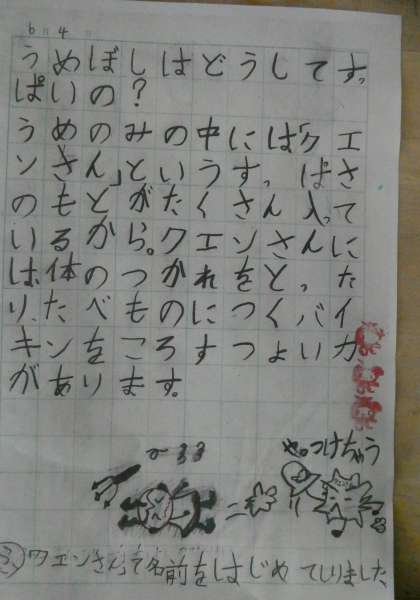 6 4
うめぼしはどうしてすっ
ぱいの？
うめのみの中には「クエ
ンさん」というすっぱさ
のもとがたくさん入って
いるから。クエンさんに
は、体のつかれをとった
り、たべものにつくバイ
キンをころすつよい力
があります。
やっつけちゃう
クエンさんって名前をはじめてしりました